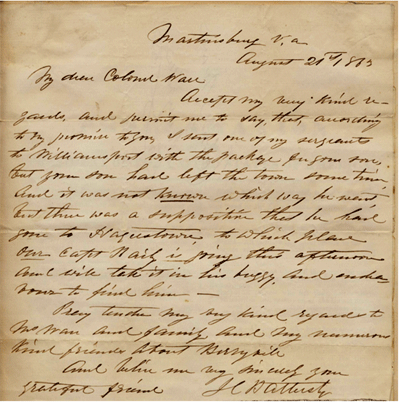 Martinsburg V.a
August 21st, 1863
My dear Colonel Ware
Accept my very kind re-
gards, and permit me to say, that, according
to my promise to you, I sent one of my sergeants
to Williamsport with the package for your son,
but your son had left the town some time
And it was not known which way he went
but there was a supposition that he had
gone to Hagerstown, to which place
Our Capt is going this afternoon
and will take it in his buggy, and endea-
vour to find him —
Pray tender my very kind regards to
Mrs Ware and family and my numerous
kind friends about Berryville
And believe me very sincerely your
grateful friend